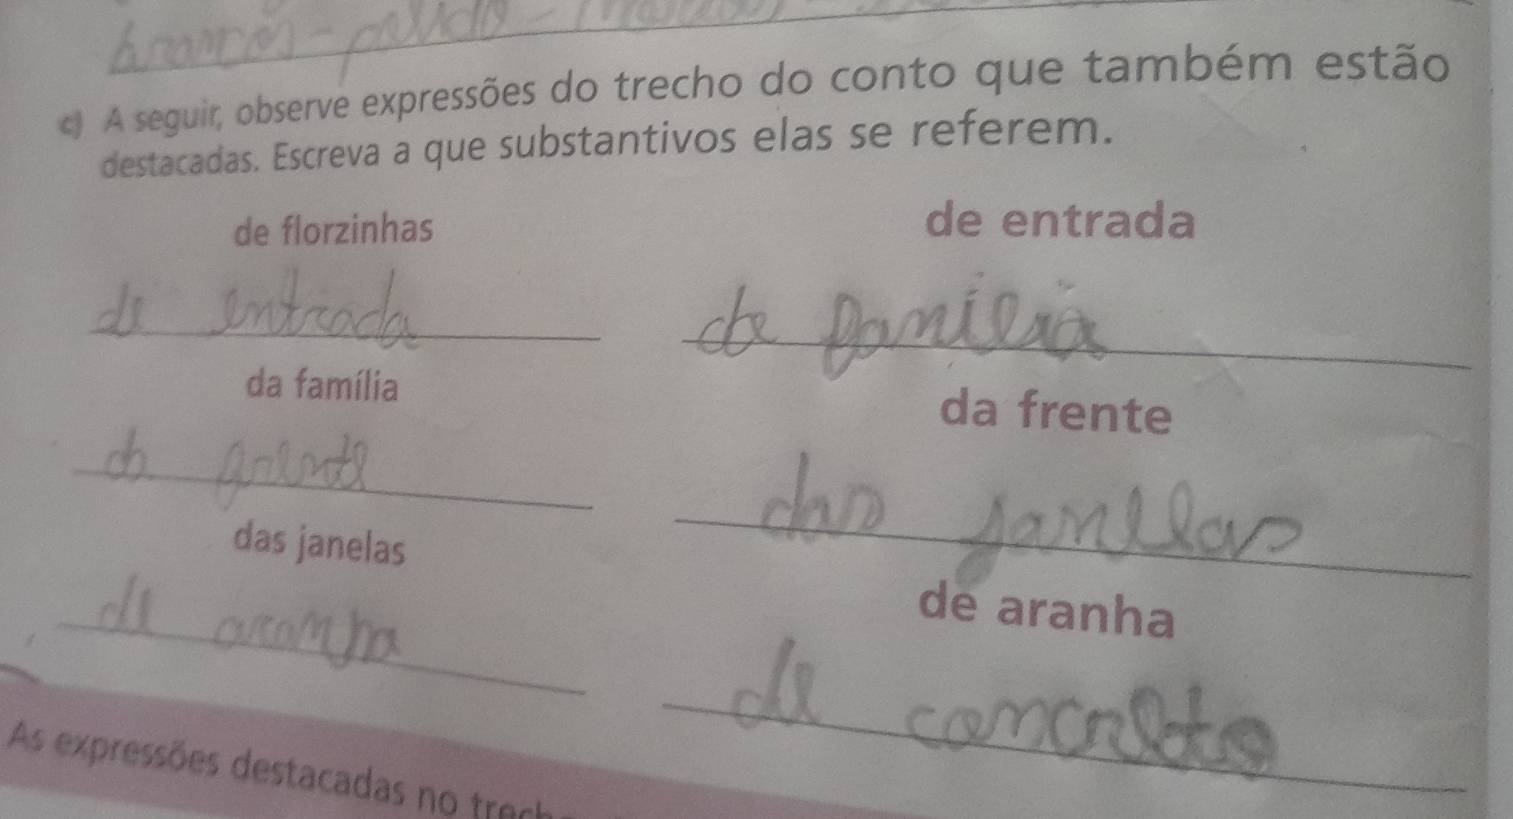 c) A seguir, observe expressões do trecho do conto que também estão
destacadas. Escreva a que substantivos elas se referem.
de florzinhas de entrada
de entrada de familia
da família da frente
da frente das janelas
das janelas de aranha
de aranha de concreto
As expressões destacadas no